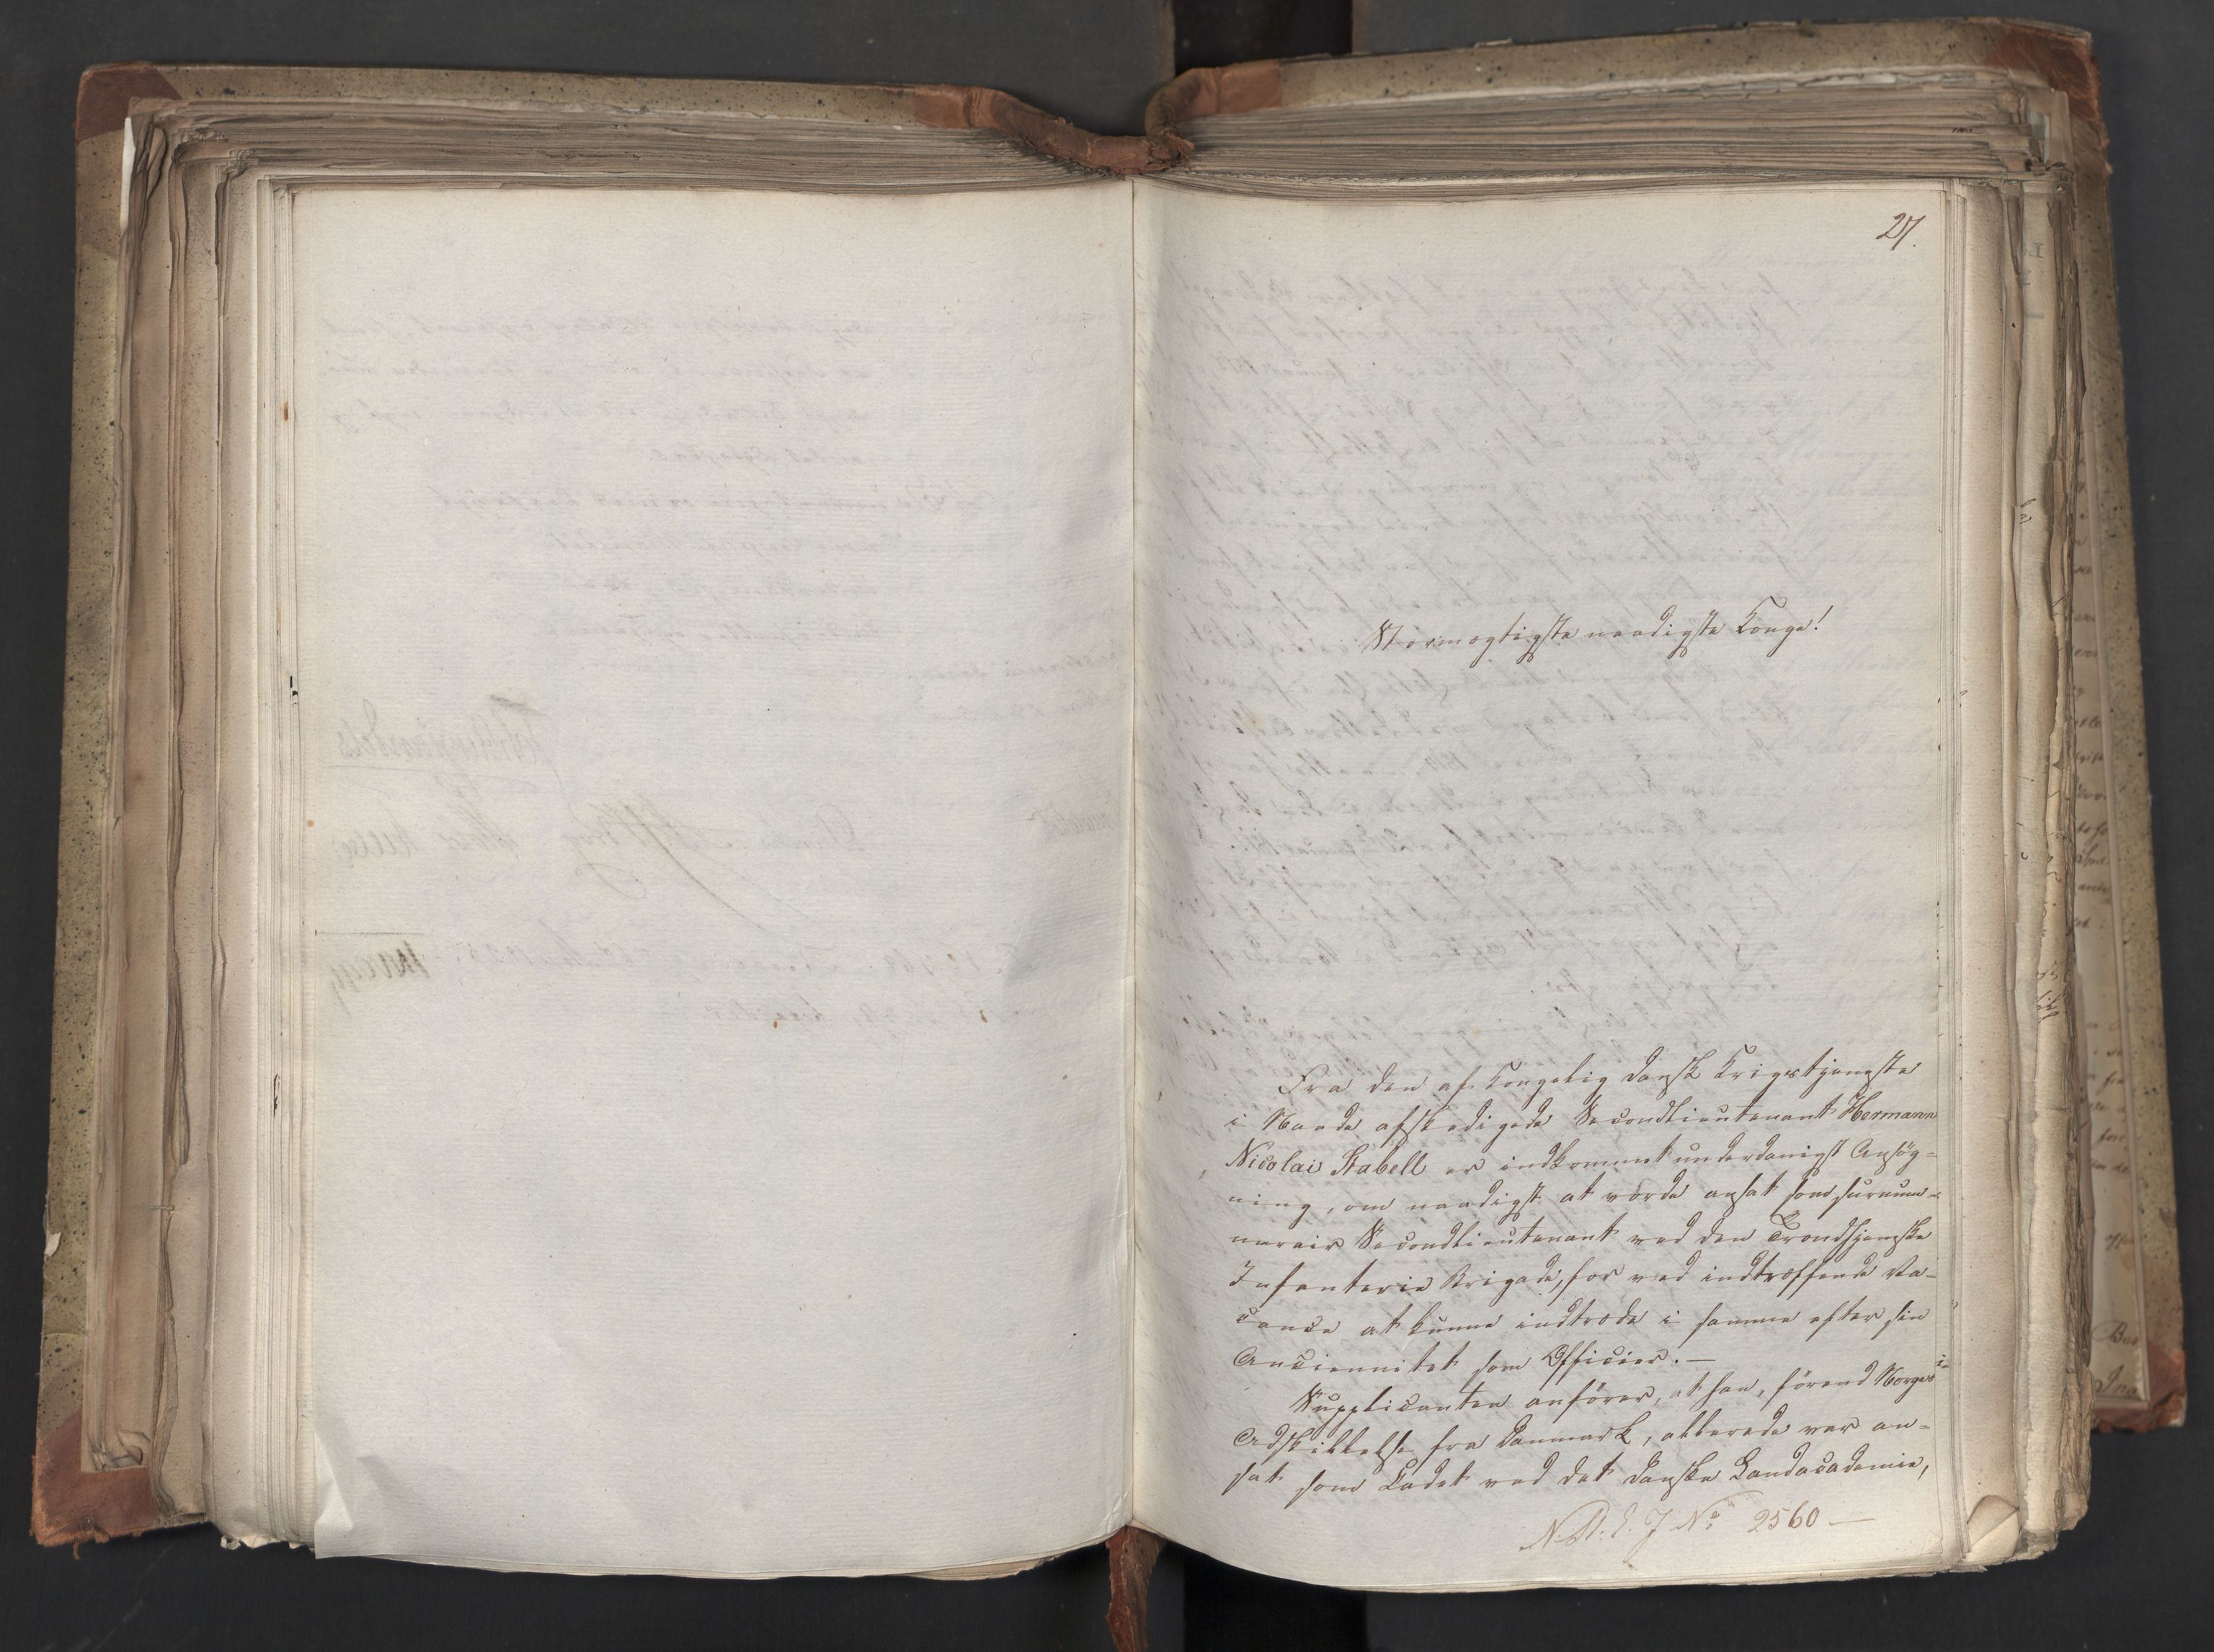 27.
Stormægtigste naadigste Konge!
Fra den af Kongelig Dansk Krigstjeneste
i Naade afskedigede Secondlieutenant Hermann
Nicolai Stabell er indkommet underdanigst Ansög-
ning, om naadigst at vorde ansat som surnum-
merair Secondlieutenant ved den Trondhjemske
Infanterie Brigade, for ved indtræffende Va-
cance at kunne indtræde i samme efter sin
Anciennitet som Officier. —
Supplicanten anförer, at han, förend Norges
Adskillelse fra Danmark, allerede var an-
sat som Cadet ved det Danske Landacademie,
No 2560 —